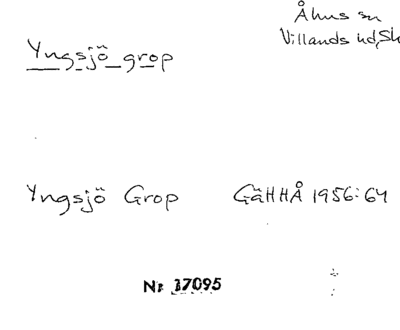 Åhus sn
Villands hd, Sk
Yngsjö grop
Yngsjö Grop GäHHÅ 1956:64
Nr 17095